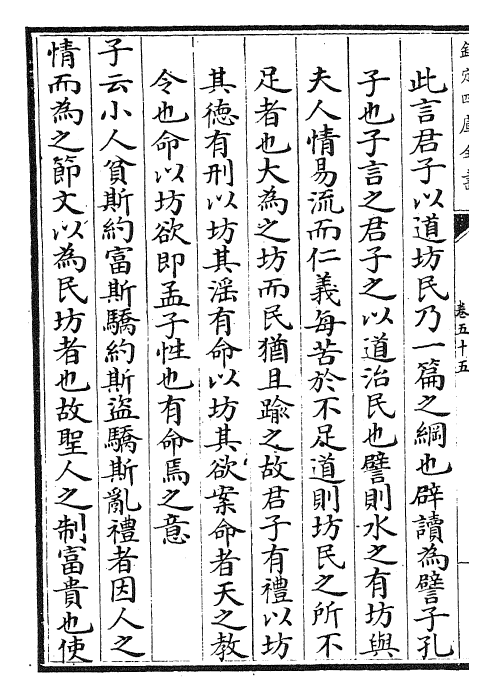 欽定四庫全書
卷五十五
此言君子以道坊民乃一篇之綱也辟讀為譬子孔
子也子言之君子之以道治民也譬則水之有坊與
夫人情易流而仁義每苦於不足道則坊民之所不
足者也大為之坊而民猶且踰之故君子有禮以坊
其徳有刑以坊其淫有命以坊其欲案命者天之教
令也命以坊欲即孟子性也有命焉之意
子云小人貧斯約富斯驕約斯盜驕斯亂禮者因人之
情而為之節文以為民坊者也故聖人之制富貴也使